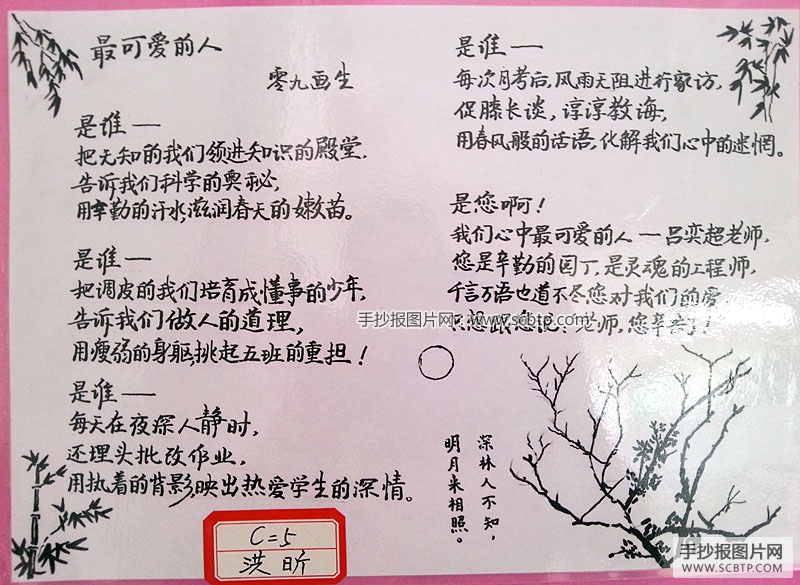 最可爱的人
零九画生
是谁—
把无知的我们领进知识的殿堂.
告诉我们科学的奥秘,
用辛勤的汗水,滋润春天的嫩苗。
是谁—
把调皮的我们培育成懂事的少年,
告诉我们做人的道理,
用瘦弱的身躯,挑起五班的重担!
是谁—
每天在夜深人静时,
还埋头批改作业,
用执着的背影映出热爱学生的深情。
是谁—
每次月考后,风雨无阻进行家访,
促膝长谈,谆谆教诲,
用春风般的话语,化解我们心中的迷惘。
是您啊!
我们心中最可爱的人—吕奕超老师,
您是辛勤的园丁,是灵魂的工程师,
千言万语也道不尽您对我们的爱
只想跟您说:老师,您辛苦了!
手抄报图片网:www.scbtp.com
深林人不知,
明月来相照。
C=5
洪昕
手抄报图片网
WWW.SCBTP.COM